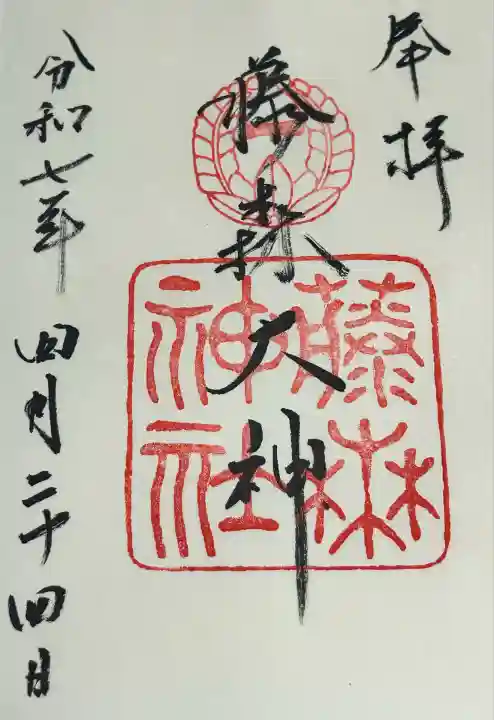 奉拝
藤森大神
藤森
神社
令和七年 四月二十四日